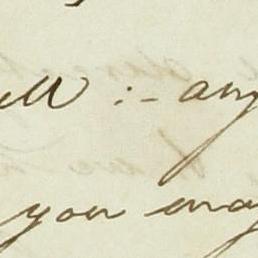 ell :- any
you may